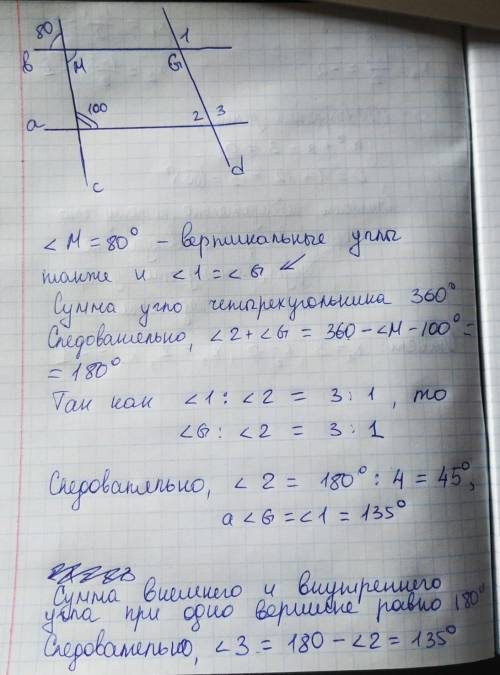 80
1
в
М
G
100
2
3
a
c
d
∠М = 80° – вертикальные углы
также и ∠1 = ∠G ↙
Сумма угло четырехугольника 360°
Следовательно, ∠2+∠G = 360 – ∠М – 100° =
= 180°
Так как ∠1 : ∠2 = 3 : 1, то
∠G : ∠2 = 3 : 1
Следовательно, ∠2 = 180° : 4 = 45°,
а ∠G = ∠1 = 135°
Сумма внешнего и внутреннего
угла при одно вершине равно 180°
Следовательно, ∠3 = 180 – ∠2 = 135°